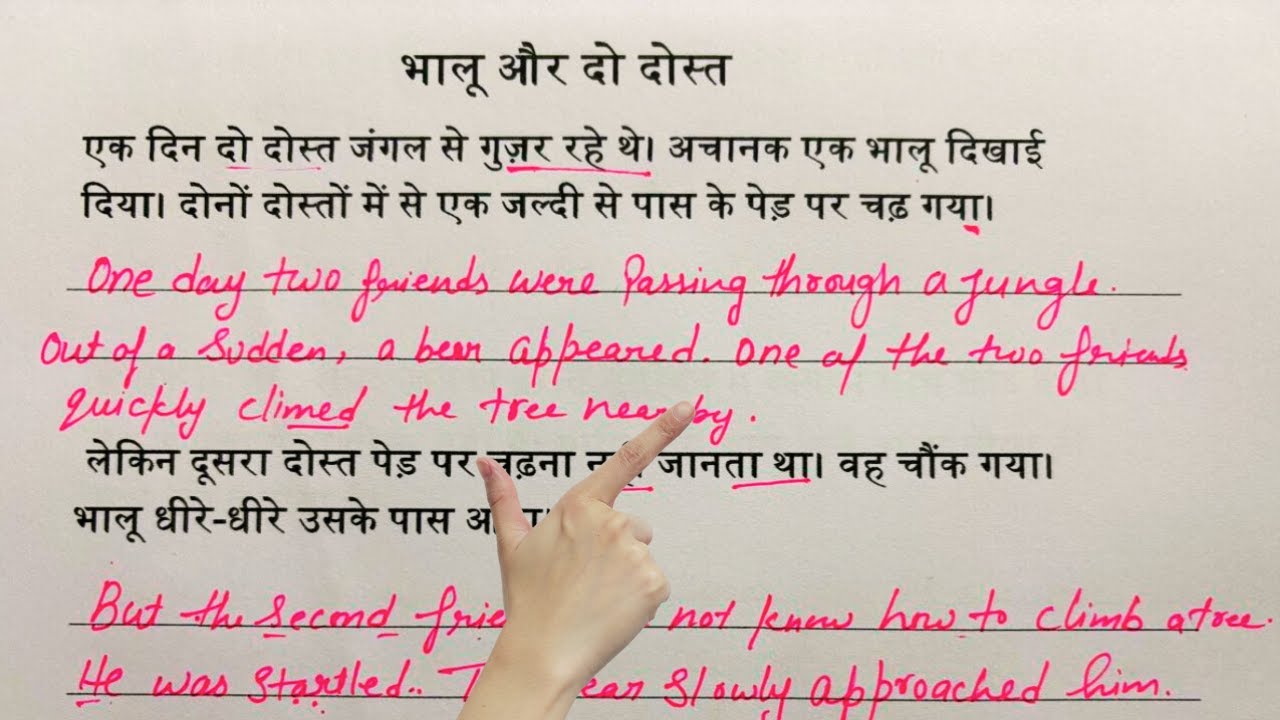 भालू और दो दोस्त
एक दिन दो दोस्त जंगल से गुज़र रहे थे। अचानक एक भालू दिखाई
दिया। दोनों दोस्तों में से एक जल्दी से पास के पेड़ पर चढ़ गया।
One day two friends were Passing through a Jungle.
Out of a Sudden, a bear appeared. One of the two friends
quickly climed the tree nearby.
लेकिन दूसरा दोस्त पेड़ पर चढ़ना जानता था। वह चौंक गया।
भालू धीरे-धीरे उसके पास
But the second not know how to climb a tree.
He was startled.. slowly approached him.